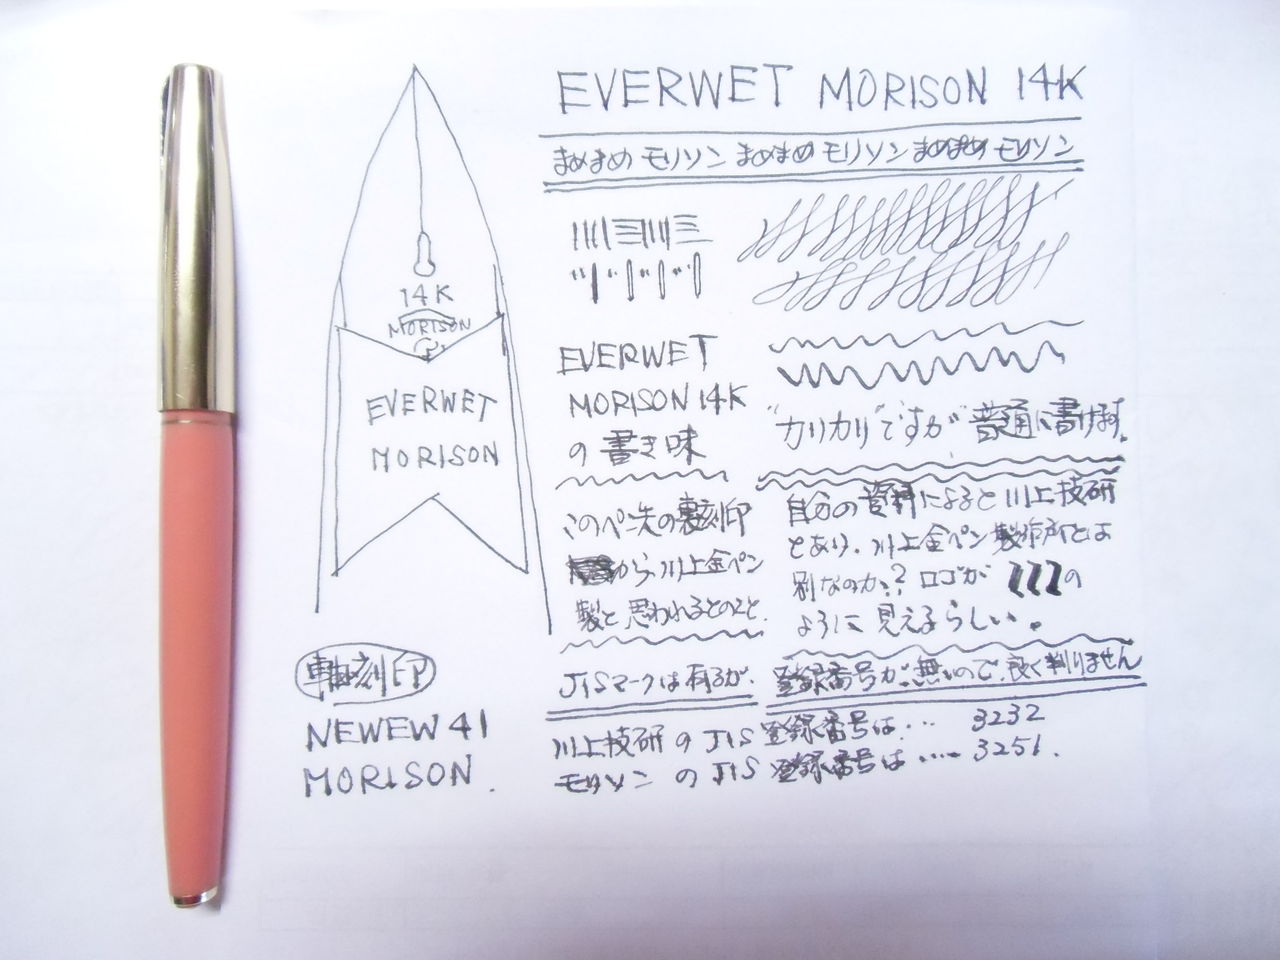 EVERWET MORISON 14K
まめまめ モリソン まめまめ モリソン まめまめ モリソン
14K
MORISON
EVERWET
MORISON
軸刻印
NEWEW 41
MORISON.
EVERWET
MORISON 14K
の 書き味
"カリカリ"ですが 普通に書けます。
このペン先の裏刻印
から、川上金ペン
製と思われるとのこと。
自分の資料によると 川上技研
とあり、川上金ペン製作所とは
別なのか? ロゴが
の
ように 見えるらしい。
JISマークは有るが、登録番号が無いので、良く判りません
川上技研 の JIS 登録番号は… 3232
モリソン の JIS 登録番号は…. 3251.